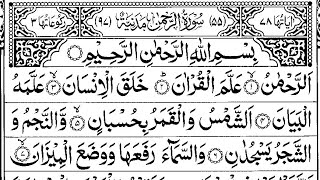 اٰیاتها ٧٨ (٥٥) سُوْرَةُ الرَّحْمٰنِ مَدَنِیَّةٌ (٩٧) رکوعاتها ٣
بِسْمِ اللّٰهِ الرَّحْمٰنِ الرَّحِیْمِ
اَلرَّحْمٰنُ ۙ۝١ عَلَّمَ الْقُرْاٰنَ ؕ۝٢ خَلَقَ الْاِنْسَانَ ۙ۝٣ عَلَّمَهُ
الْبَیَانَ ۝٤ اَلشَّمْسُ وَ الْقَمَرُ بِحُسْبَانٍ ۪۝٥ وَّ النَّجْمُ وَ
الشَّجَرُ یَسْجُدٰنِ ۝٦ وَ السَّمَآءَ رَفَعَهَا وَ وَضَعَ الْمِیْزَانَ ۙ۝٧